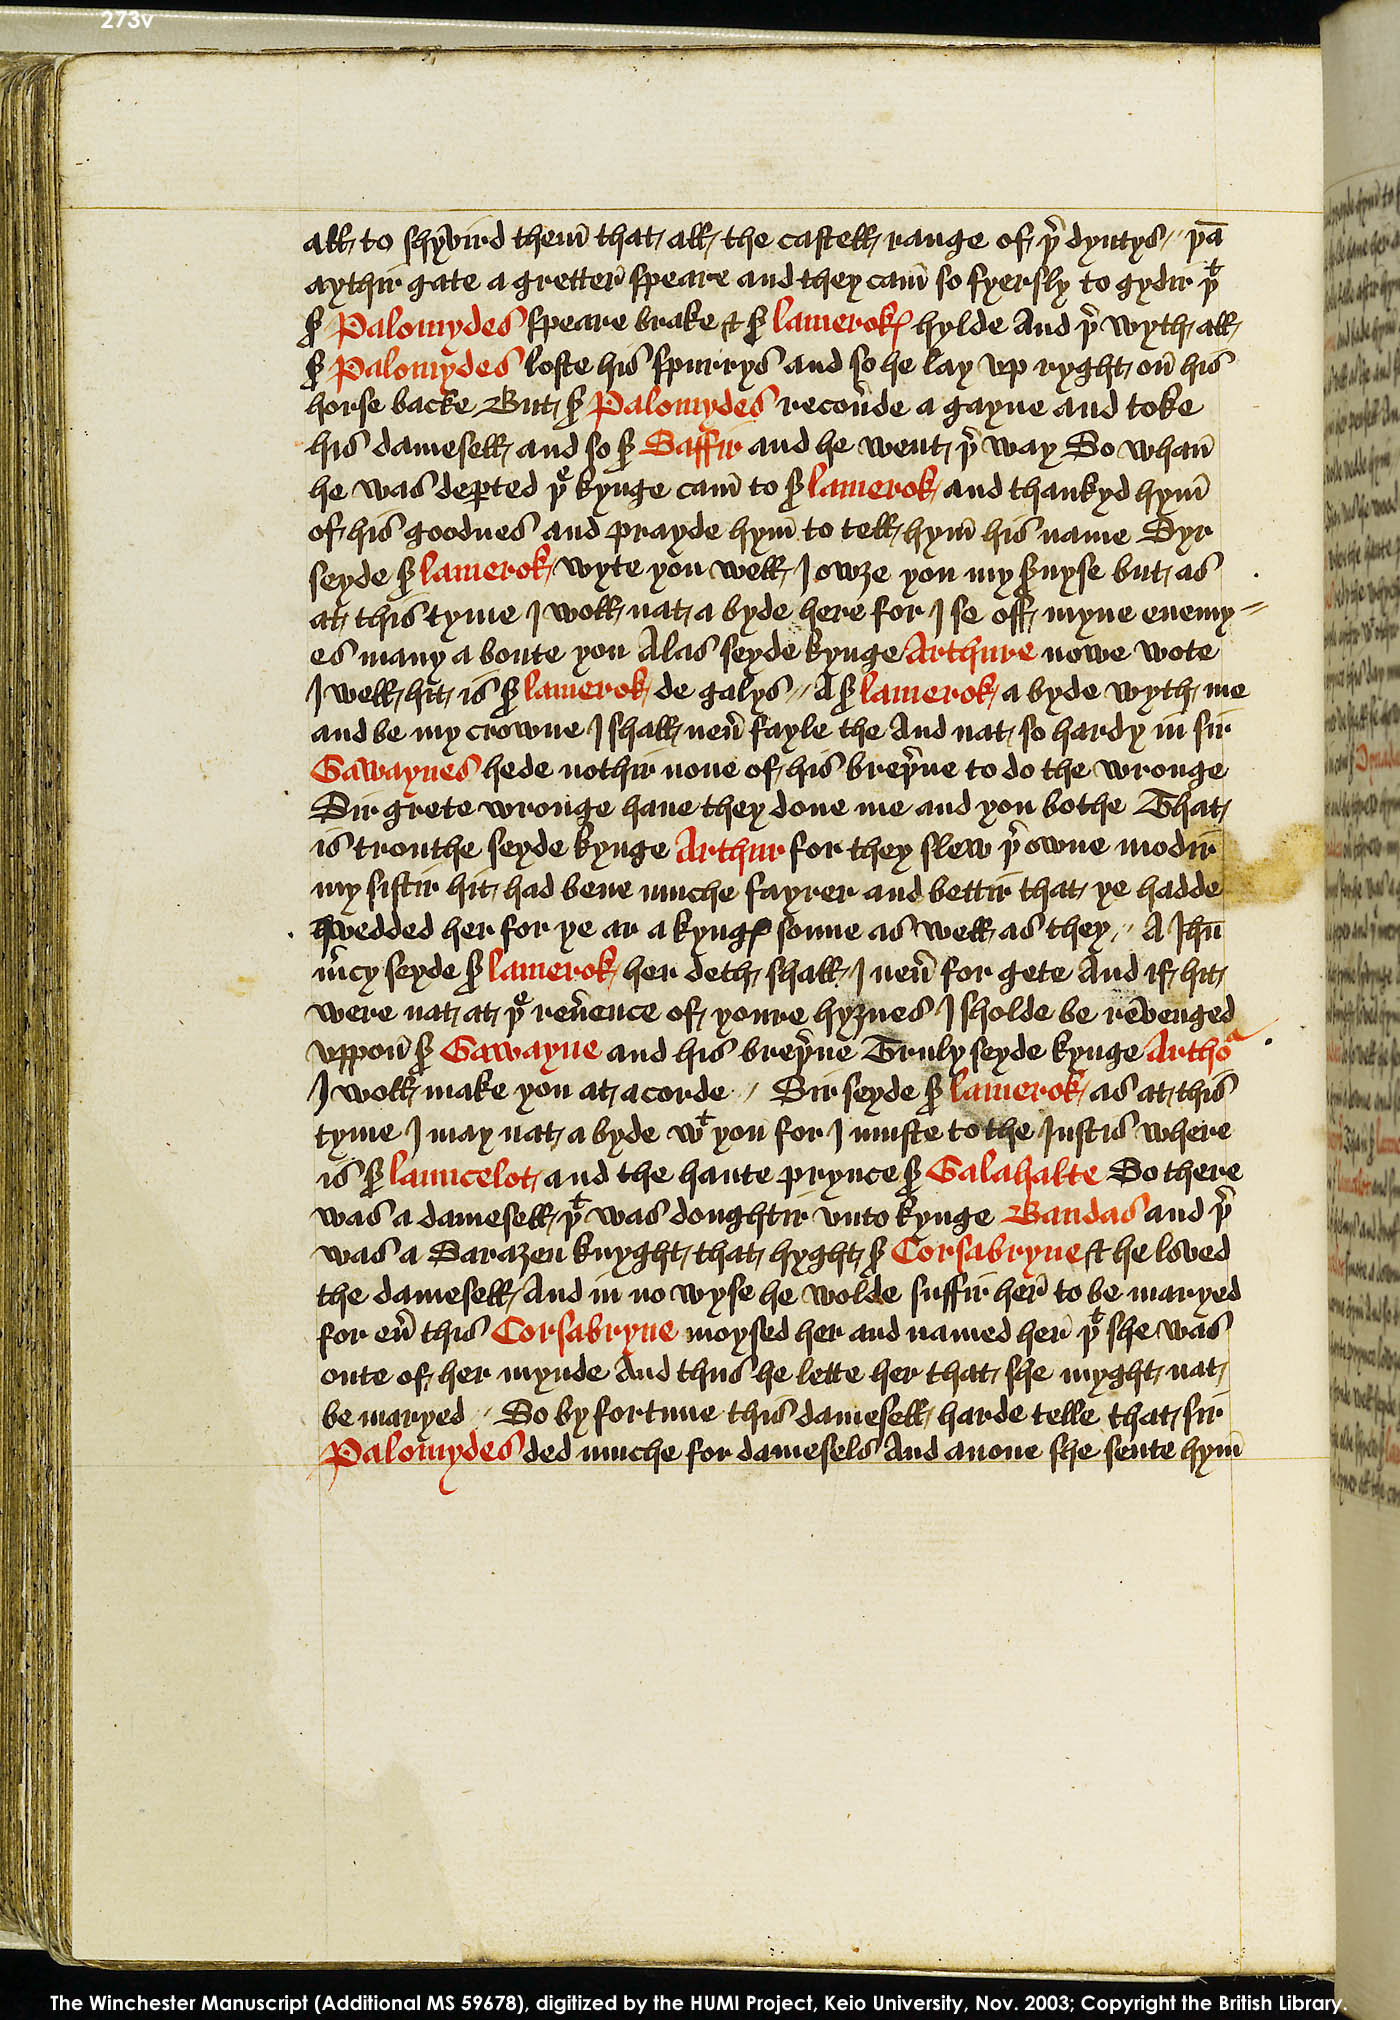 273v
all to shyvird them̄ that all the castell range of þr̄ dyntys // þā
aythir gate a gretter̄ speare and they cam̄ so fyersly to gydir þt
Sr̄ Palomydes speare brake & Sr̄ lamerok hylde And þr̄ wyth all
Sr̄ Palomydes loste his spurrys and so he lay vp ryght on̄ his
horse backe But Sr̄ Palomydes recoūde a gayne and toke
his damesell and so Sr̄ Saffir and he went þr̄ way So whan̄
he was deꝑted þe kynge cam̄ to Sr̄ lamerok and thankyd hym̄
of his goodnes and prayde hym̄ to tell hym̄ his name Syr
seyde Sr̄ lamerok wyte you well I owȝe you my s̄uyse but as
at this tyme I woll nat a byde here for I se off myne enemy =
es many a boute you Alas seyde kynge Arthure nowe wote
I well hit is Sr̄ lamerok de galys // A Sr̄ lamerok a byde wyth me
and be my crowne I shall neuū fayle the And nat so hardy in sir
Gawaynes hede nothir none of his breþr̄ne to do the wronge
Sir grete wronge haue they done me and you bothe That
is trouthe seyde kynge Arthur for they slew þr̄ owne modir
my sistir hit had bene muche fayrer and bettir that ye hadde
wedded her for ye ar a kyngꝭ sonne as well as they // A Jhū
m̄cy seyde Sr̄ lamerok her deth shall I neuū for gete And if hit
were nat at þe reūence of youre hyȝnes I sholde be revenged
vppon̄ Sr̄ Gawayne and his breþr̄ne Truly seyde kynge Artho
I woll make you at acorde // Sir seyde Sr̄ lamerok as at this
tyme I may nat a byde wt you for I muste to the Justis where
is Sr̄ launcelot and the haute prynce Sr̄ Galahalte So there
was a damesell þt was doughtir vnto kynge Bandas and þr̄
was a Sarazen knyght that hyght Sr̄ Corsabryne & he loved
the damesell And in no wyse he wolde suffir her̄ to be maryed
for eū this Corsabryne noysed her and named her̄ þt she was
oute of her mynde And thus he lette her that she myght nat
be maryed // So by fortune this damesell harde telle that sir
Palomydes ded muche for damesels And anone she sente hym̄
The Winchester Manuscript (Additional MS 59678), digitized by the HUMI Project, Keio University, Nov. 2003; Copyright the British Library.